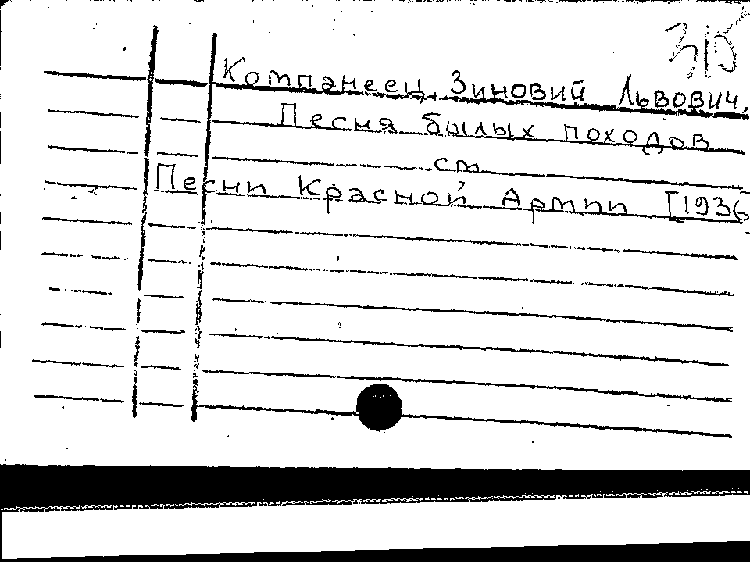 315
Компанеец, Зиновий Львович.
Песня былых походов
см.
Песни Красной Армии [1936